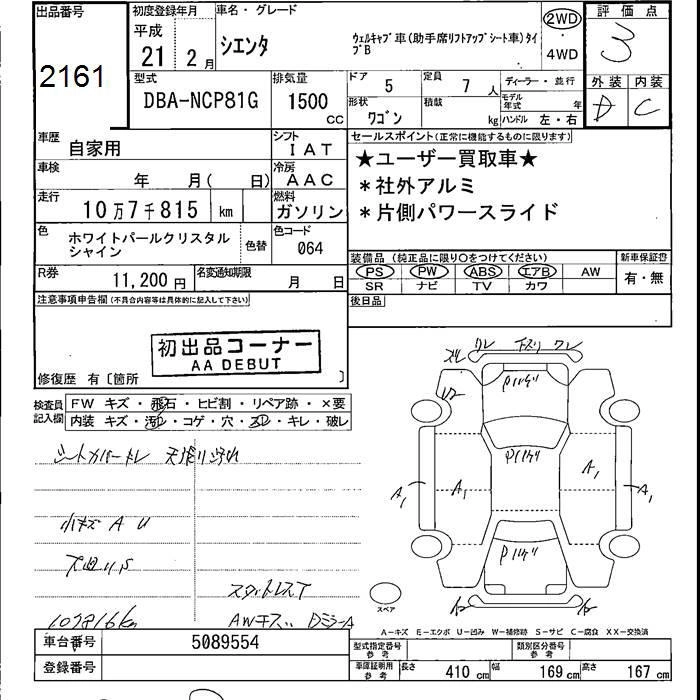 出品番号
2161
初度登録年月
平成
21 年 2 月
車名・グレード
シエンタ
ウェルキャブ車(助手席リフトアップシート車)タイ
プB
2WD
・
4WD
評価点
3
外装 内装
D C
型式
DBA-NCP81G
排気量
1500
CC
ドア 5
定員 7 人
ディーラー・並行
形状 ワゴン
積載 kg
モデル年式 年
ハンドル 左・右
車歴 自家用
シフト IAT
車検 年 月( 日)
冷房 AAC
走行 10万7千815 km
燃料 ガソリン
色 ホワイトパールクリスタル
シャイン
色替
色コード 064
R券 11,200 円
名変通知期限 月 日
セールスポイント(正常に機能するものに限ります)
★ユーザー買取車★
*社外アルミ
*片側パワースライド
装備品(純正品に限り〇をつけてください)
PS PW ABS エアB AW
SR ナビ TV カワ
新車保証書
有・無
後日品
注意事項申告欄(不具合内容等は具体的に記入して下さい)
初出品コーナー
AA DEBUT
修復歴 有〔箇所 〕
検査員
記入欄
FW キズ・飛石・ヒビ割・リペア跡・×要
内装 キズ・汚レ・コゲ・穴・スレ・キレ・破レ
シートカバートレ 天張リ汚れ
小キズ A U
スタットレスT
107816km
AWキズ
スレ ワレ ワレ
A1 A1 A1 A1
スペア
A-キズ E-エクボ U-凹み W-補修跡 S-サビ C-腐食 XX-交換済
車台番号 5089554
登録番号
型式指定番号
参考
類別区分番号
参考
車庫証明用
参考
長さ 410 cm
幅 169 cm
高さ 167 cm